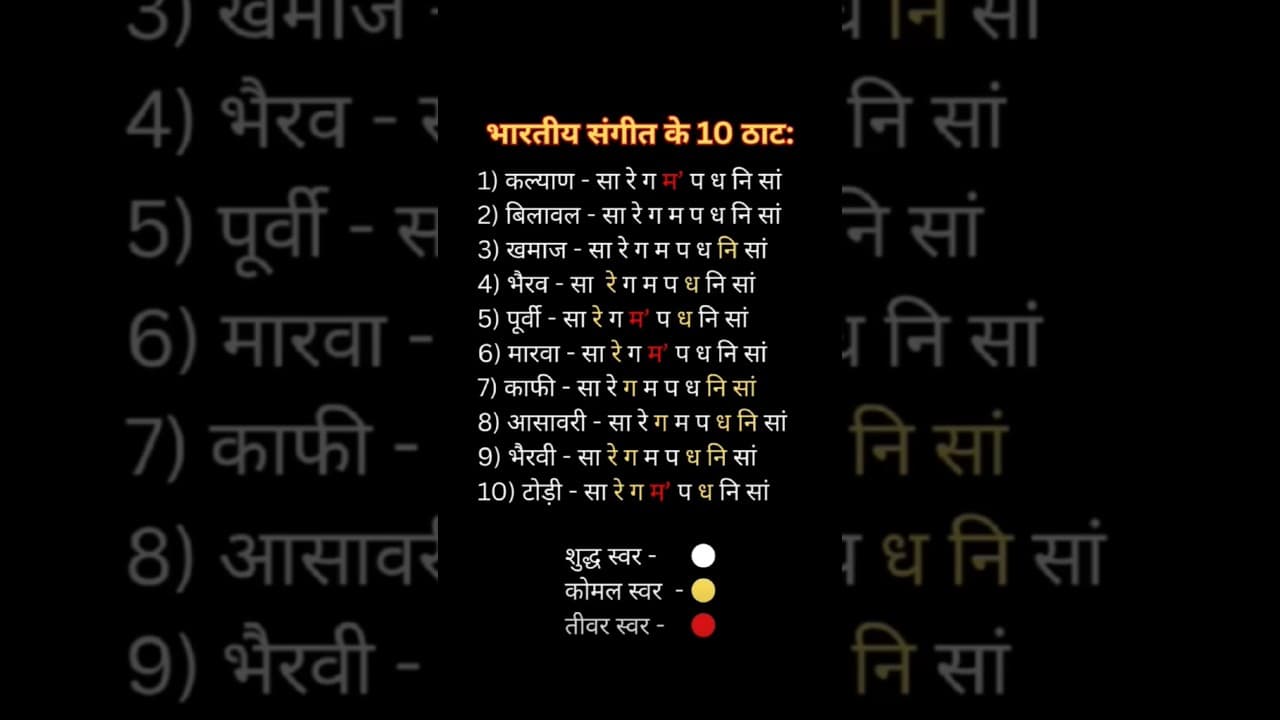 भारतीय संगीत के 10 ठाट:
1) कल्याण - सा रे ग म’ प ध नि सां
2) बिलावल - सा रे ग म प ध नि सां
3) खमाज - सा रे ग म प ध नि सां
4) भैरव - सा रे ग म प ध नि सां
5) पूर्वी - सा रे ग म’ प ध नि सां
6) मारवा - सा रे ग म’ प ध नि सां
7) काफी - सा रे ग म प ध नि सां
8) आसावरी - सा रे ग म प ध नि सां
9) भैरवी - सा रे ग म प ध नि सां
10) टोड़ी - सा रे ग म’ प ध नि सां
शुद्ध स्वर -
कोमल स्वर -
तीवर स्वर -